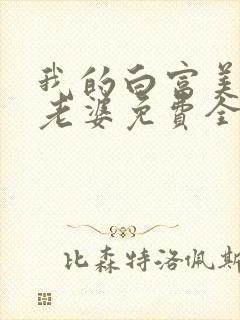 我的白富美
老婆免费全
比森特洛佩斯